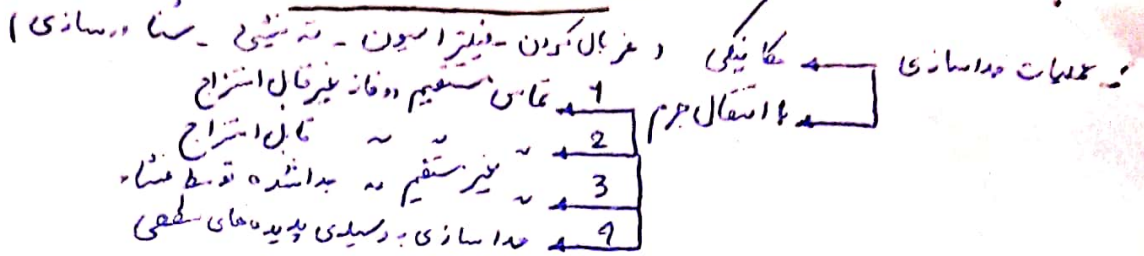 عملیات جداسازی
مکانیکی ( غربال کردن - فیلتراسیون - ته نشینی - شناورسازی )
با انتقال جرم
1 تماس مستقیم دو فاز غیر قابل امتزاج
2 " " " قابل امتزاج
3 " غیر مستقیم " جدا شده توسط غشاء
4 جداسازی به وسیله‌ی پدیده‌های سطحی